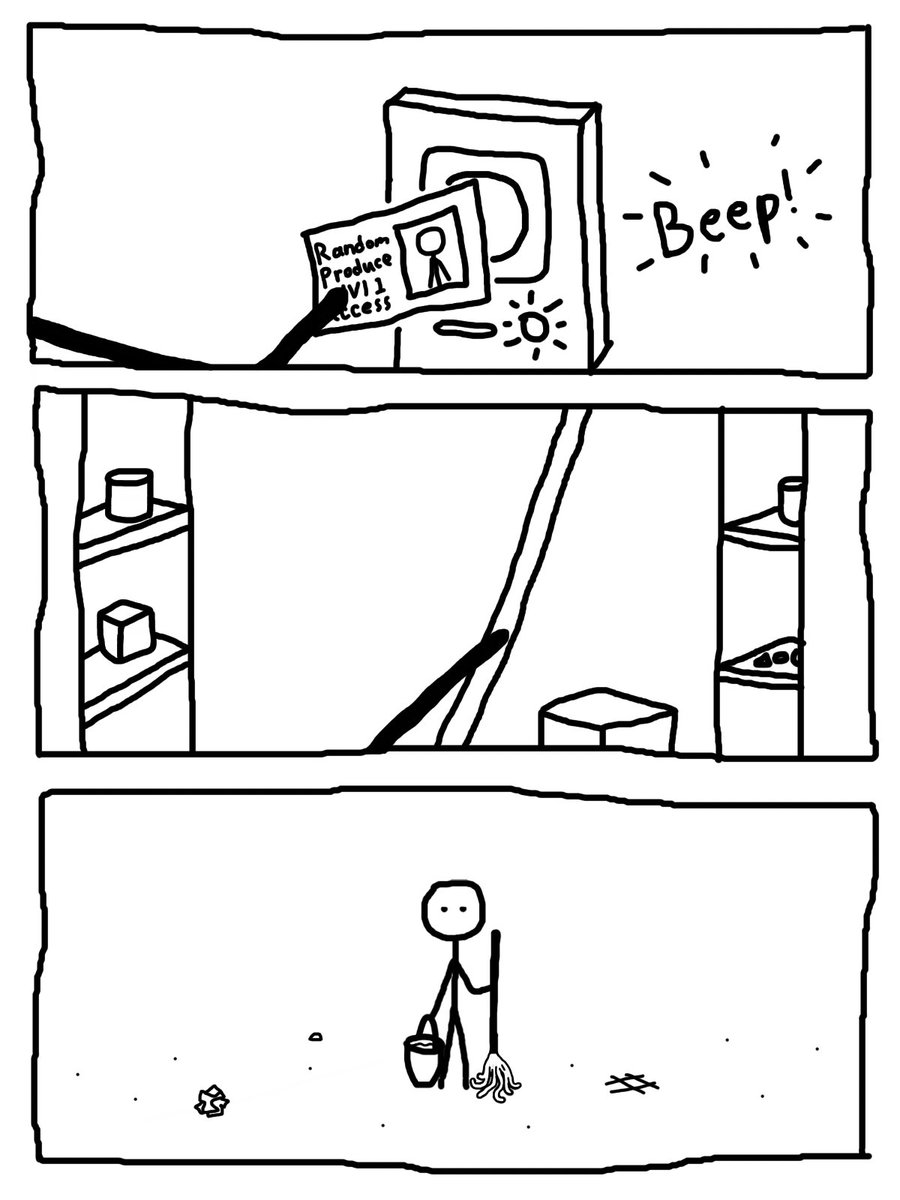 Random
Produce
lvl 1
Access
Beep!